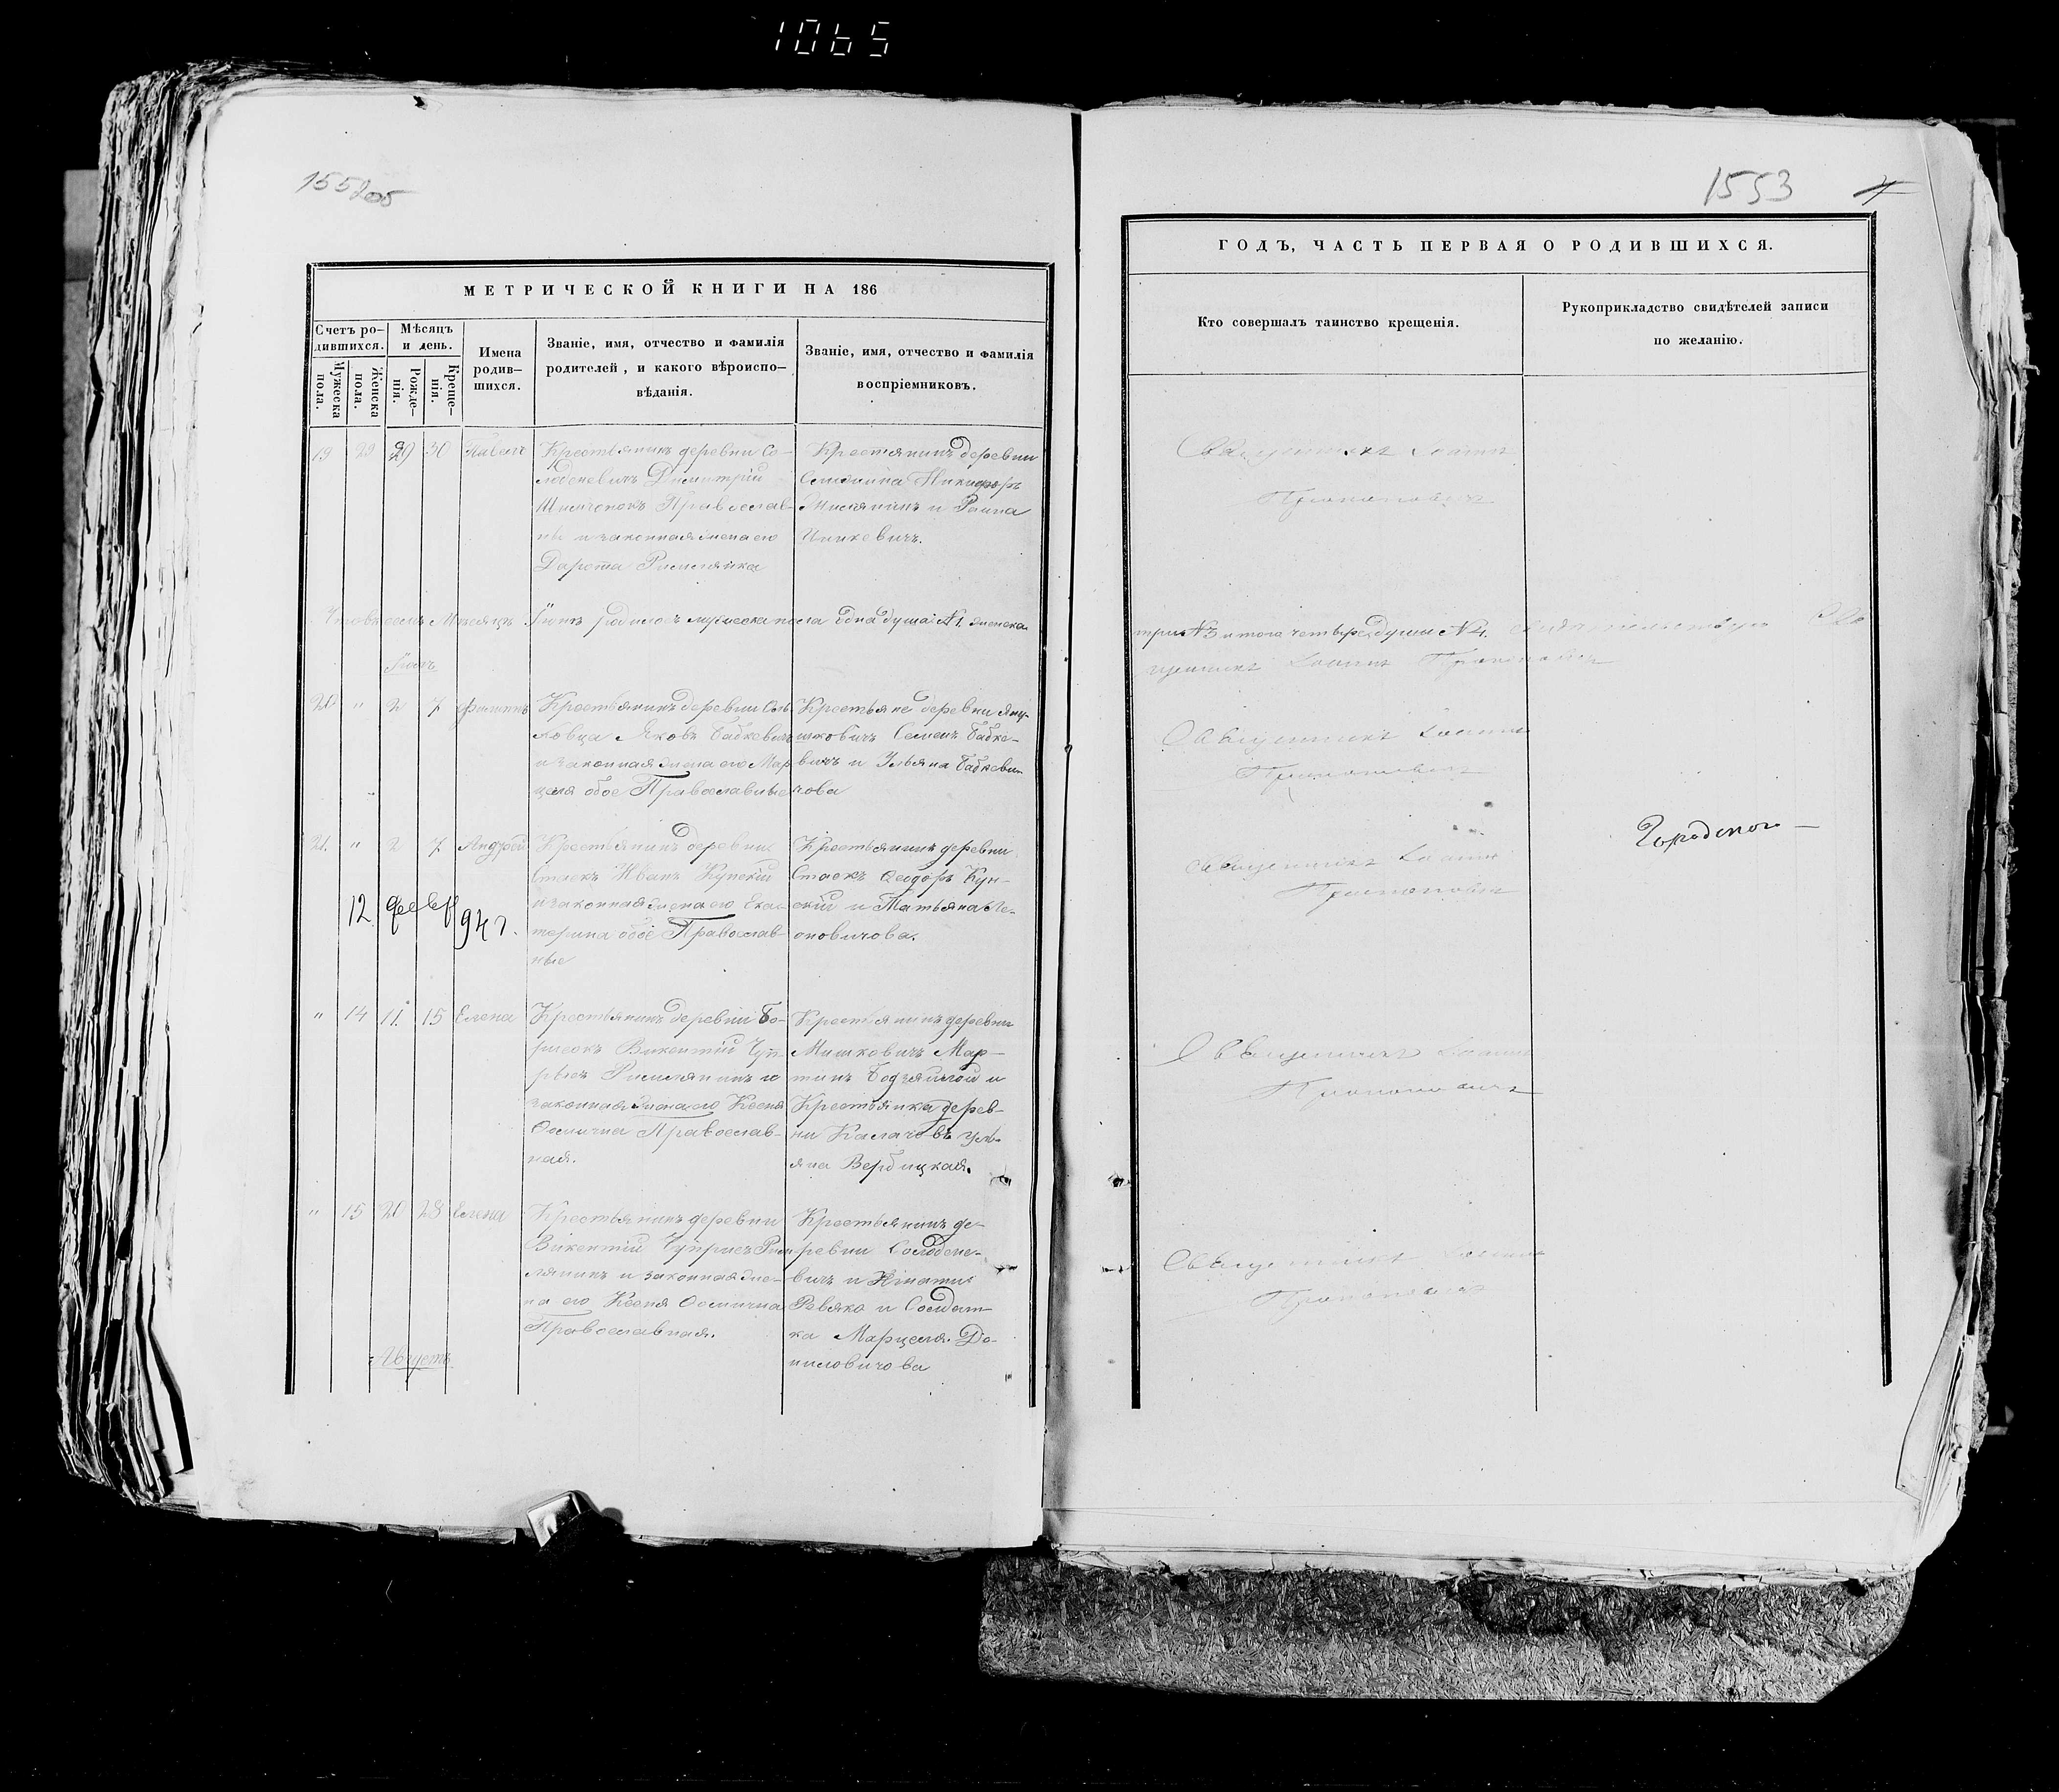 1065
1552об
МЕТРИЧЕСКОЙ КНИГИ НА 186
Счетъ ро-
дившихся.
Мѣсяцъ
и день.
Мужеска
пола.
Женска
пола.
Рожде-
нія.
Креще-
нія.
Имена
родив-
шихся.
Званіе, имя, отчество и фамилія
родителей, и какого вѣроиспо-
вѣданія.
Званіе, имя, отчество и фамилія
воспріемниковъ.
19 29 30 Павелъ
Крестьянинъ деревни Со-
лоденевичъ Димитрій
Православ-
ны и законная жена его
Дарота Римлянка
Крестянинъ деревни
Никифоръ
и Раина
Мѣсяцъ Іюнь родилось мужеска пола одна душа №1. женска
Іюль
20 " 2 7 Филиппъ
Крестьянинъ деревни
Яковъ Бабкевичъ
и законная жена его Мар-
целя обое Православные
Крестьяне деревни Яну-
шковичъ Семенъ Бабке-
вичъ и Ульяна Бабкеви-
чова
21. " 2 7 Андрей
Крестьянинъ деревни
Стаекъ Иванъ Купскій
и законная жена его Ека-
терина обоё Православ-
ные
Крестьянинъ деревни
Стаекъ Ѳеодоръ Куп-
скій и Татьяна Ле-
оновичова.
12 февр 94 г.
" 14 11. 15 Елена
Крестьянинъ деревни Бо-
рисокъ Викентій Чуп-
рысъ Римлянинъ и
законная жена его Ксенія
Осипична Православ-
ная.
Крестьянинъ деревни
Мишковичъ Мар-
тинъ и
Крестьянка дерев-
ни Калачовъ Уль-
яна Вербицкая.
" 15 20 28 Елена
Крестьянинъ деревни
Викентій Чуприсъ Рим-
лянинъ и законная же-
на его Ксенія Осипична
Православная.
Крестьянинъ де-
ревни Солодене-
вичъ и Игнатій
Ревяко и Солдат-
ка Марцеля До-
ниловичова
Августъ
1553
ГОДЪ, ЧАСТЬ ПЕРВАЯ О РОДИВШИХСЯ.
Кто совершалъ таинство крещенія.
Рукоприкладство свидѣтелей записи
по желанію.
Священникъ Іоаннъ
Прокоповичъ
три №3 итого четыре души №4.
щенникъ Іоаннъ Прокоповичъ
Священникъ Іоаннъ
Прокоповичъ
Священникъ Іоаннъ
Прокоповичъ
Городского —
Священникъ Іоаннъ
Прокоповичъ
Священникъ Іоаннъ
Прокоповичъ